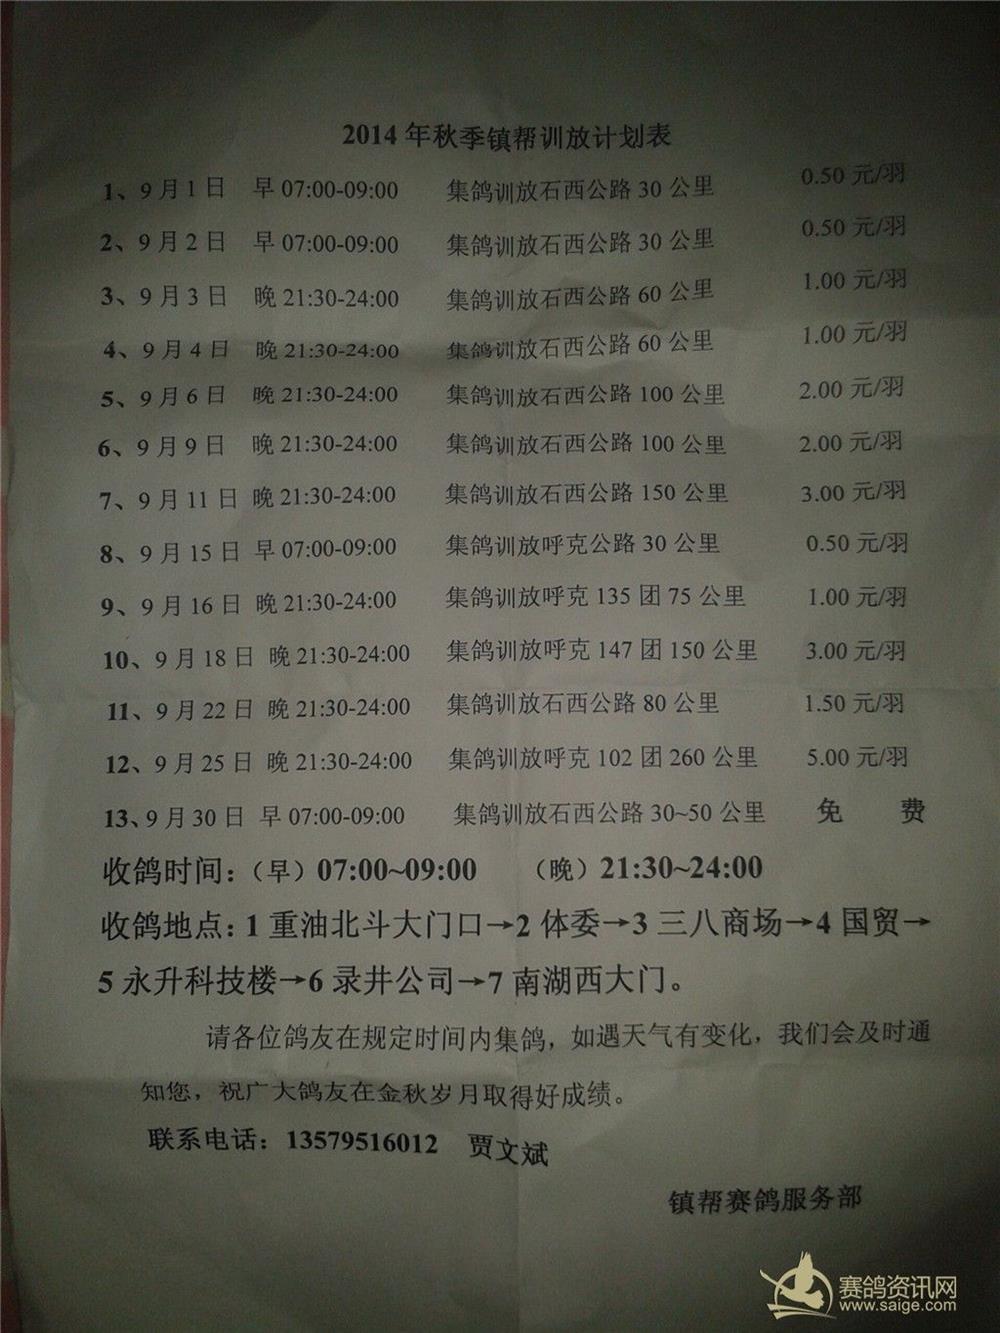 2014 年秋季镇帮训放计划表
1、9 月 1 日 早 07:00-09:00 集鸽训放石西公路 30 公里 0.50 元/羽
2、9 月 2 日 早 07:00-09:00 集鸽训放石西公路 30 公里 0.50 元/羽
3、9 月 3 日 晚 21:30-24:00 集鸽训放石西公路 60 公里 1.00 元/羽
4、9 月 4 日 晚 21:30-24:00 集鸽训放石西公路 60 公里 1.00 元/羽
5、9 月 6 日 晚 21:30-24:00 集鸽训放石西公路 100 公里 2.00 元/羽
6、9 月 9 日 晚 21:30-24:00 集鸽训放石西公路 100 公里 2.00 元/羽
7、9 月 11 日 晚 21:30-24:00 集鸽训放石西公路 150 公里 3.00 元/羽
8、9 月 15 日 早 07:00-09:00 集鸽训放呼克公路 30 公里 0.50 元/羽
9、9 月 16 日 晚 21:30-24:00 集鸽训放呼克 135 团 75 公里 1.00 元/羽
10、9 月 18 日 晚 21:30-24:00 集鸽训放呼克 147 团 150 公里 3.00 元/羽
11、9 月 22 日 晚 21:30-24:00 集鸽训放石西公路 80 公里 1.50 元/羽
12、9 月 25 日 晚 21:30-24:00 集鸽训放呼克 102 团 260 公里 5.00 元/羽
13、9 月 30 日 早 07:00-09:00 集鸽训放石西公路 30~50 公里 免 费
收鸽时间：（早）07:00~09:00 （晚）21:30~24:00
收鸽地点：1 重油北斗大门口→2 体委→3 三八商场→4 国贸→
5 永升科技楼→6 录井公司→7 南湖西大门。
请各位鸽友在规定时间内集鸽，如遇天气有变化，我们会及时通
知您，祝广大鸽友在金秋岁月取得好成绩。
联系电话：13579516012 贾文斌
镇帮赛鸽服务部
赛鸽资讯网
www.saige.com